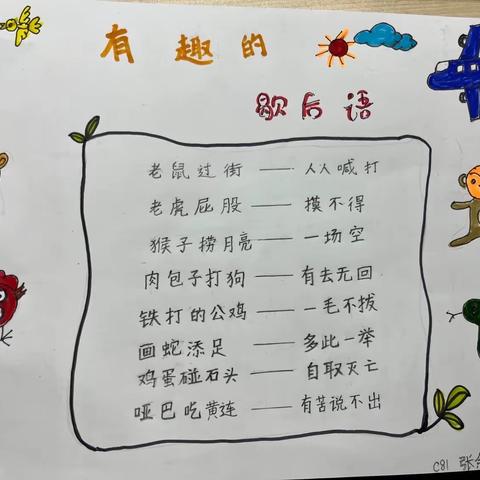 有趣的
歇后语
老鼠过街——人人喊打
老虎屁股——摸不得
猴子捞月亮——一场空
肉包子打狗——有去无回
铁打的公鸡——一毛不拔
画蛇添足——多此一举
鸡蛋碰石头——自取灭亡
哑巴吃黄连——有苦说不出
C81 张